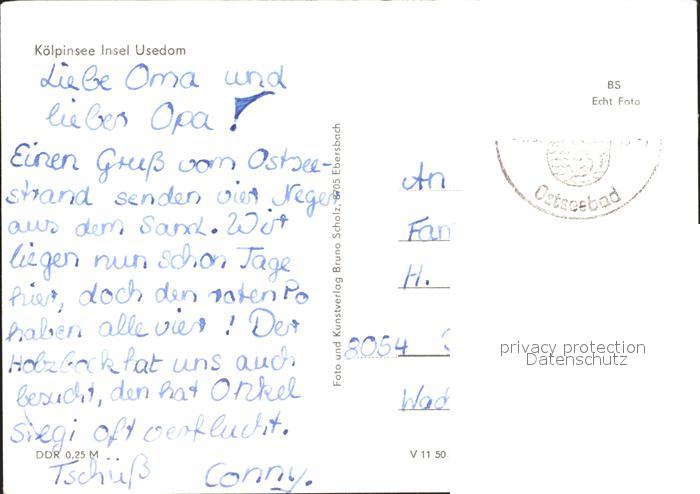 Kölpinsee Insel Usedom
Liebe Oma und
lieber Opa!
Einen Gruß vom Ostsee-
strand senden vier Neger
aus dem Sand. Wir
liegen nun schon Tage
hier, doch den roten Po
haben alle vier! Der
Holzbock hat uns auch
besucht, den hat Onkel
Siegi oft verflucht.
Tschüß Conny.
DDR 0,25 M
V 11 50
Foto und Kunstverlag Bruno Scholz, 8705 Ebersbach
BS
Echt Foto
Ostseebad
An
Fam
H.
8054
privacy protection
Datenschutz